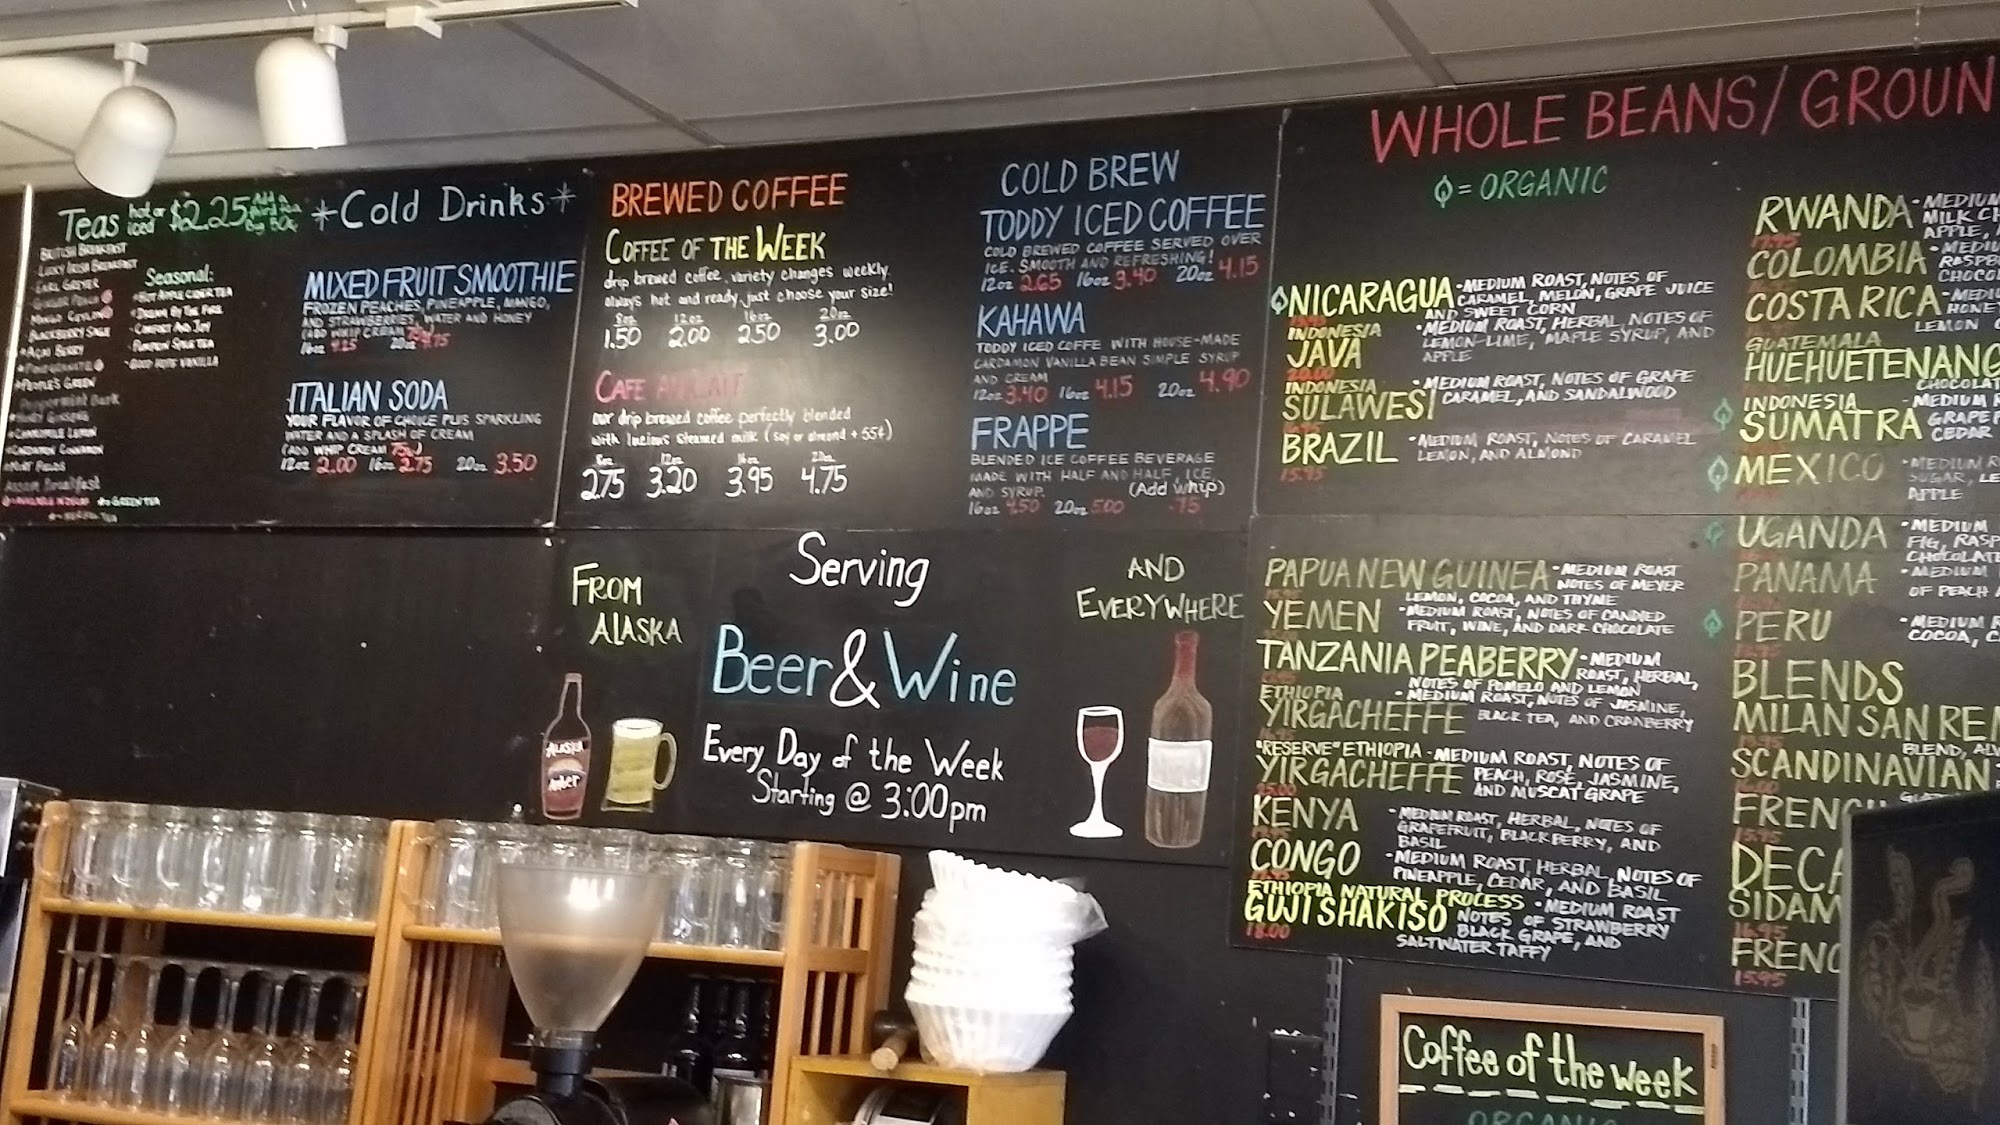 Teas hot or iced $2.25
BRITISH BREAKFAST
LUCKY IRISH BREAKFAST
EARL GREYER
GINGER PEACH
MANGO CEYLON
BLACKBERRY SAGE
AÇAI BERRY
POMEGRANATE
PEOPLE'S GREEN
HONEY GINSENG
CHAMOMILE LEMON
CARDAMON CINNAMON
MINT FIELDS
Assam Breakfast
Seasonal:
HOT APPLE CIDER TEA
COMFORT AND JOY
PUMPKIN SPICE TEA
GOOD HOPE VANILLA
*Cold Drinks*
MIXED FRUIT SMOOTHIE
FROZEN PEACHES, PINEAPPLE, MANGO,
AND STRAWBERRIES, WATER AND HONEY
(ADD WHIP CREAM 75¢)
16oz 4.25 20oz 4.75
ITALIAN SODA
YOUR FLAVOR OF CHOICE PLUS SPARKLING
WATER AND A SPLASH OF CREAM
(ADD WHIP CREAM 75¢)
12oz 2.00 16oz 2.75 20oz 3.50
BREWED COFFEE
COFFEE OF THE WEEK
drip brewed coffee, variety changes weekly.
always hot and ready, just choose your size!
8oz 12oz 16oz 20oz
1.50 2.00 2.50 3.00
CAFE AU LAIT
our drip brewed coffee perfectly blended
with luscious steamed milk (soy or almond + 55¢)
8oz 12oz 16oz 20oz
2.75 3.20 3.95 4.75
COLD BREW
TODDY ICED COFFEE
COLD BREWED COFFEE SERVED OVER
ICE. SMOOTH AND REFRESHING!
12oz 2.65 16oz 3.40 20oz 4.15
KAHAWA
TODDY ICED COFFE WITH HOUSE-MADE
CARDAMON VANILLA BEAN SIMPLE SYRUP
AND CREAM
12oz 3.40 16oz 4.15 20oz 4.90
FRAPPE
BLENDED ICE COFFEE BEVERAGE
MADE WITH HALF AND HALF, ICE,
AND SYRUP. (Add whip)
16oz 4.50 20oz 5.00 .75
FROM
ALASKA
Serving
Beer & Wine
Every Day of the Week
Starting @ 3:00pm
AND
EVERYWHERE
ALASKA
Amber
WHOLE BEANS/GROUN
= ORGANIC
NICARAGUA - MEDIUM ROAST, NOTES OF
CARAMEL, MELON, GRAPE JUICE
AND SWEET CORN
INDONESIA
JAVA - MEDIUM ROAST, HERBAL, NOTES OF
LEMON-LIME, MAPLE SYRUP, AND
APPLE
20.00
INDONESIA
SULAWESI - MEDIUM ROAST, NOTES OF GRAPE
CARAMEL, AND SANDALWOOD
BRAZIL - MEDIUM ROAST, NOTES OF CARAMEL
LEMON, AND ALMOND
15.95
PAPUA NEW GUINEA - MEDIUM ROAST
NOTES OF MEYER
LEMON, COCOA, AND THYME
YEMEN - MEDIUM ROAST, NOTES OF CANDIED
FRUIT, WINE, AND DARK CHOCOLATE
TANZANIA PEABERRY - MEDIUM
ROAST, HERBAL,
NOTES OF POMELO AND LEMON
ETHIOPIA
YIRGACHEFFE - MEDIUM ROAST, NOTES OF JASMINE,
BLACK TEA, AND CRANBERRY
"RESERVE" ETHIOPIA - MEDIUM ROAST, NOTES OF
YIRGACHEFFE PEACH, ROSE, JASMINE,
AND MUSCAT GRAPE
25.00
KENYA - MEDIUM ROAST, HERBAL, NOTES OF
GRAPEFRUIT, BLACKBERRY, AND
BASIL
CONGO - MEDIUM ROAST, HERBAL, NOTES OF
PINEAPPLE, CEDAR, AND BASIL
ETHIOPIA NATURAL PROCESS - MEDIUM ROAST
GUJI SHAKISO NOTES OF STRAWBERRY
BLACK GRAPE, AND
SALTWATER TAFFY
18.00
RWANDA - MEDIUM
MILK CH
APPLE,
COLOMBIA - MEDIU
RASPB
CHOCOL
COSTA RICA - MEDIU
HONEY
LEMON
GUATEMALA
HUEHUETENANG
CHOCOLAT
INDONESIA
SUMATRA - MEDIUM R
GRAPE F
CEDAR
MEXICO - MEDIUM R
SUGAR, LE
APPLE
UGANDA - MEDIUM
FIG, RASP
CHOCOLATE
PANAMA - MEDIUM
OF PEACH
PERU - MEDIUM R
COCOA, C
BLENDS
MILAN SAN RE
BLEND, ALW
SCANDINAVIAN
FRENCH
15.95
DECA
SIDAM
16.95
FRENC
15.95
Coffee of the week
ORGANIC